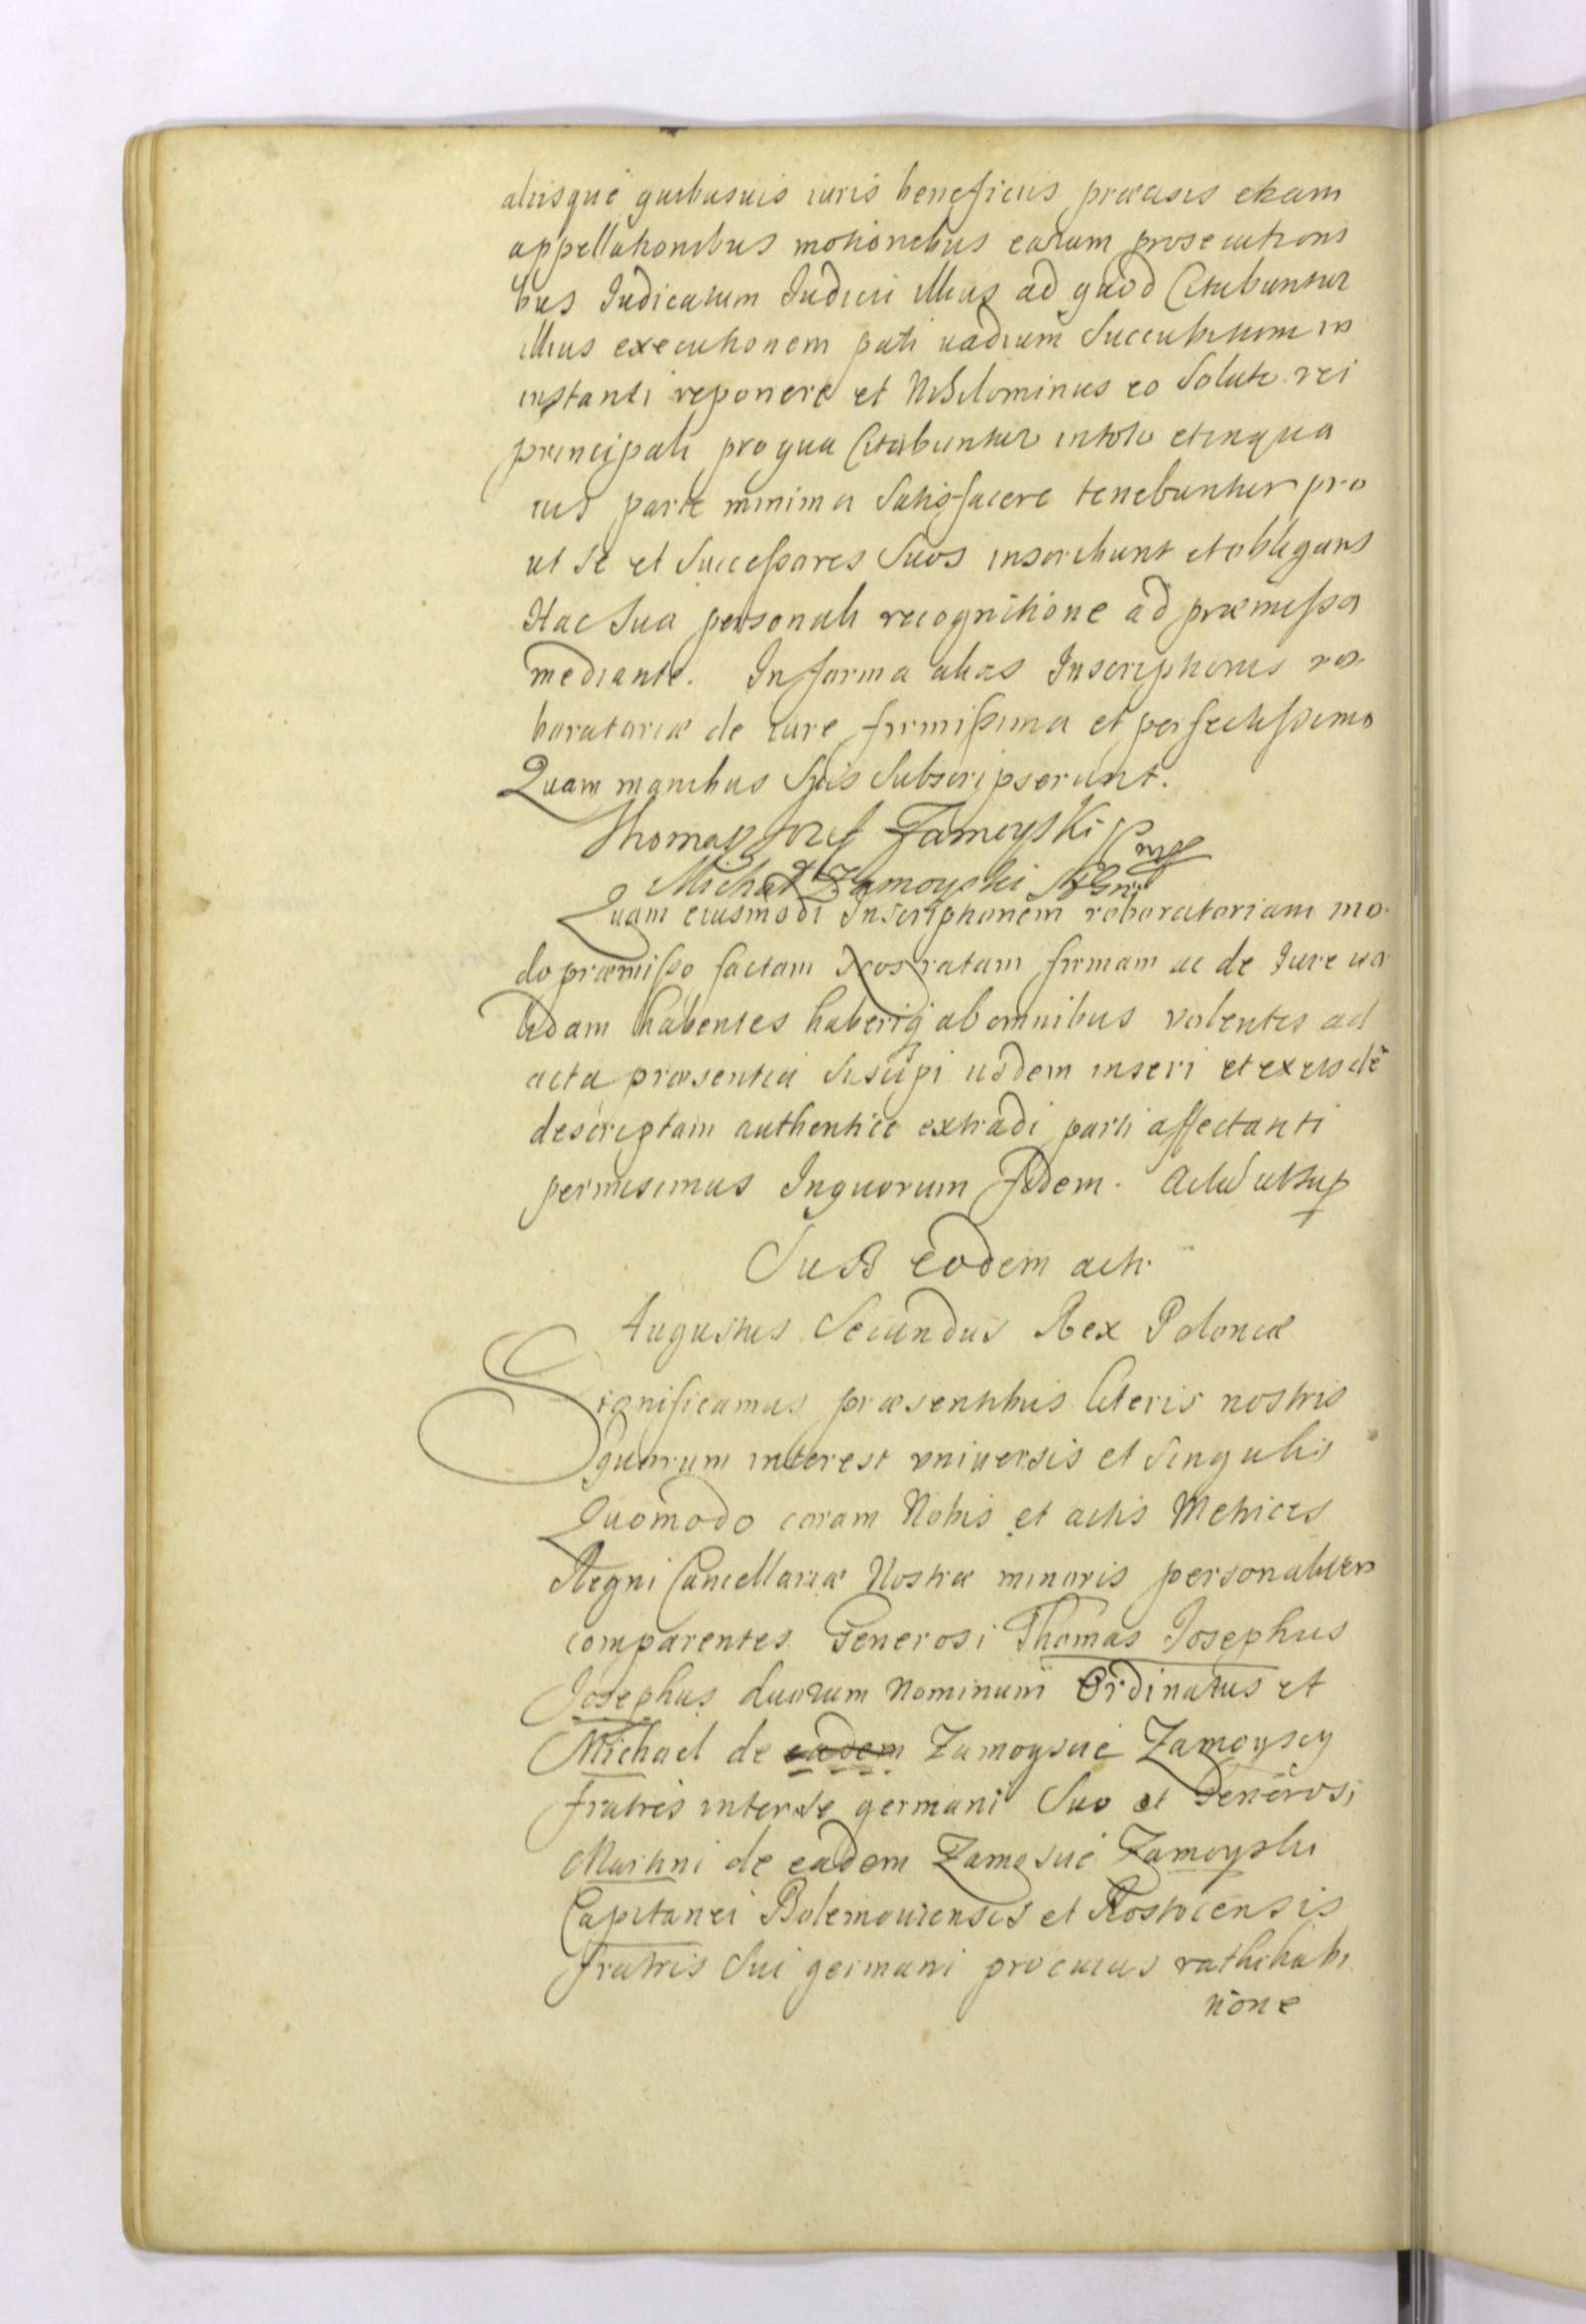 aliisque quibusuis iuris beneficiis præcisis etiam
appellationibus motionibus earum prosecutioni
bus Iudicatum Iudicii illius ad quod Citabuntur
illius executionem pati uadium Succubitum in
instanti reponere et Nihilominus eo Soluto rei
principali pro qua Citabuntur in toto et in qua
uis parte minima Satisfacere tenebuntur pro
ut se et Successores Suos inscribunt et obligant
Hac Sua personali recognitione ad præmissa
mediante. In forma alias Inscriptionis ro
boratoriæ de iure firmissima et perfectissima
Quam manibus Suis Subscripserunt.
Thomasz Jozef Zamoyski
Michał Zamoyski
Quam eiusmodi Inscriptionem roboratoriam mo
do præmisso factam Nos ratam firmam ac de Iure va
lidam habentes haberiq ab omnibus volentes ad
acta præsentia Suscipi iisdem inseri et ex eisdē
descriptam authentice extradi parti affectanti
permisimus In quorum fidem. Actū ut sup
Sub eodem actu
Augustus Secundus Rex Poloniæ
Significamus præsentibus literis nostris
quorum interest vniuersis et Singulis
Quomodo coram Nobis et actis Metrices
Regni Cancellariæ Nostræ minoris personaliter
comparentes Generosi Thomas Josephus
Josephus duorum Nominum Ordinatus et
Michael de eadem Zamoyscie Zamoyscy
fratres inter se germani Suo et Generosi
Martini de eadem Zamoscie Zamoyski
Capitanei Bolemouiensis et Rostocensis
fratris Sui germani pro cuius rathihabi
tione